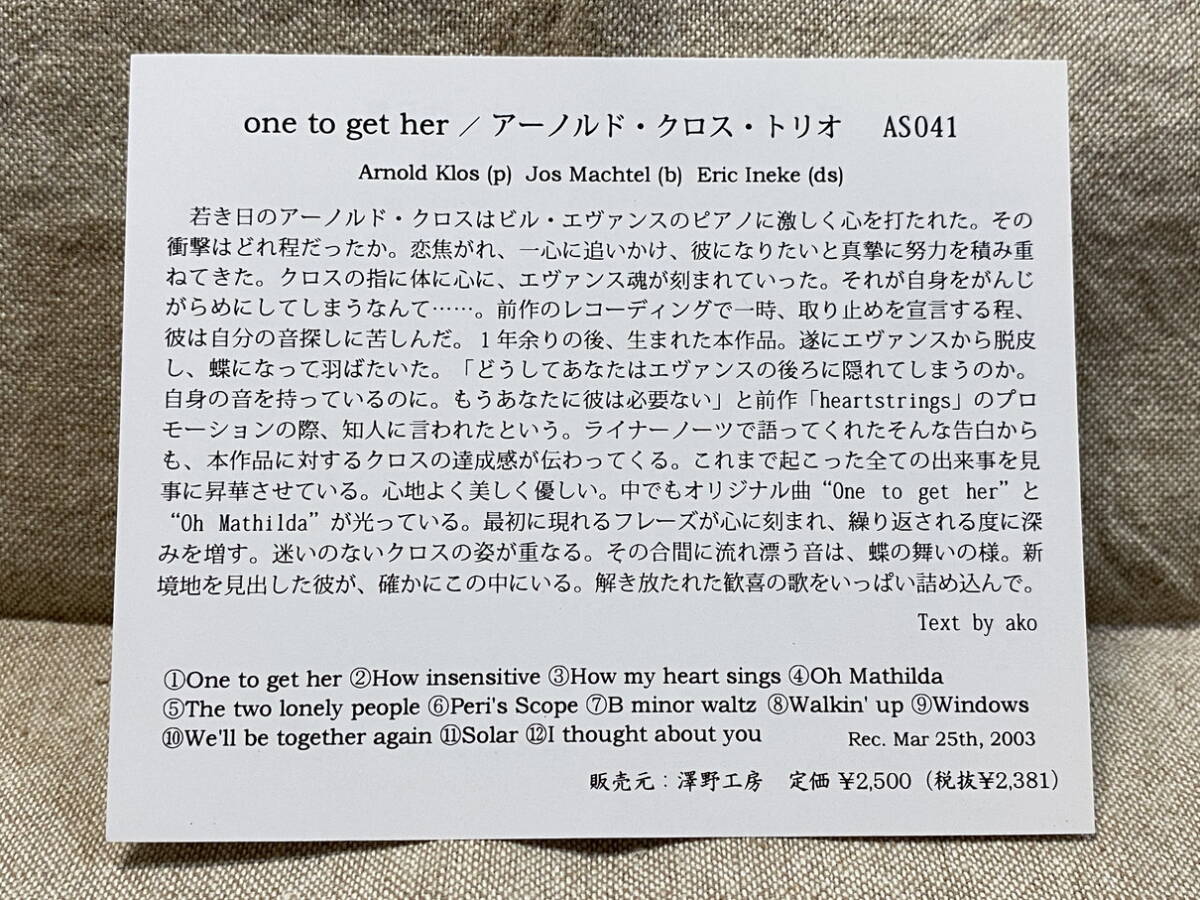 one to get her / アーノルド・クロス・トリオ AS041
Arnold Klos (p) Jos Machtel (b) Eric Ineke (ds)
若き日のアーノルド・クロスはビル・エヴァンスのピアノに激しく心を打たれた。その
衝撃はどれ程だったか。恋焦がれ、一心に追いかけ、彼になりたいと真摯に努力を積み重
ねてきた。クロスの指に体に心に、エヴァンス魂が刻まれていった。それが自身をがんじ
がらめにしてしまうなんて……。前作のレコーディングで一時、取り止めを宣言する程、
彼は自分の音探しに苦しんだ。1年余りの後、生まれた本作品。遂にエヴァンスから脱皮
し、蝶になって羽ばたいた。「どうしてあなたはエヴァンスの後ろに隠れてしまうのか。
自身の音を持っているのに。もうあなたに彼は必要ない」と前作「heartstrings」のプロ
モーションの際、知人に言われたという。ライナーノーツで語ってくれたそんな告白から
も、本作品に対するクロスの達成感が伝わってくる。これまで起こった全ての出来事を見
事に昇華させている。心地よく美しく優しい。中でもオリジナル曲“One to get her”と
“Oh Mathilda”が光っている。最初に現れるフレーズが心に刻まれ、繰り返される度に深
みを増す。迷いのないクロスの姿が重なる。その合間に流れ漂う音は、蝶の舞いの様。新
境地を見出した彼が、確かにこの中にいる。解き放たれた歓喜の歌をいっぱい詰め込んで。
Text by ako
①One to get her ②How insensitive ③How my heart sings ④Oh Mathilda
⑤The two lonely people ⑥Peri's Scope ⑦B minor waltz ⑧Walkin' up ⑨Windows
⑩We'll be together again ⑪Solar ⑫I thought about you Rec. Mar 25th, 2003
販売元：澤野工房 定価 ¥2,500（税抜¥2,381）